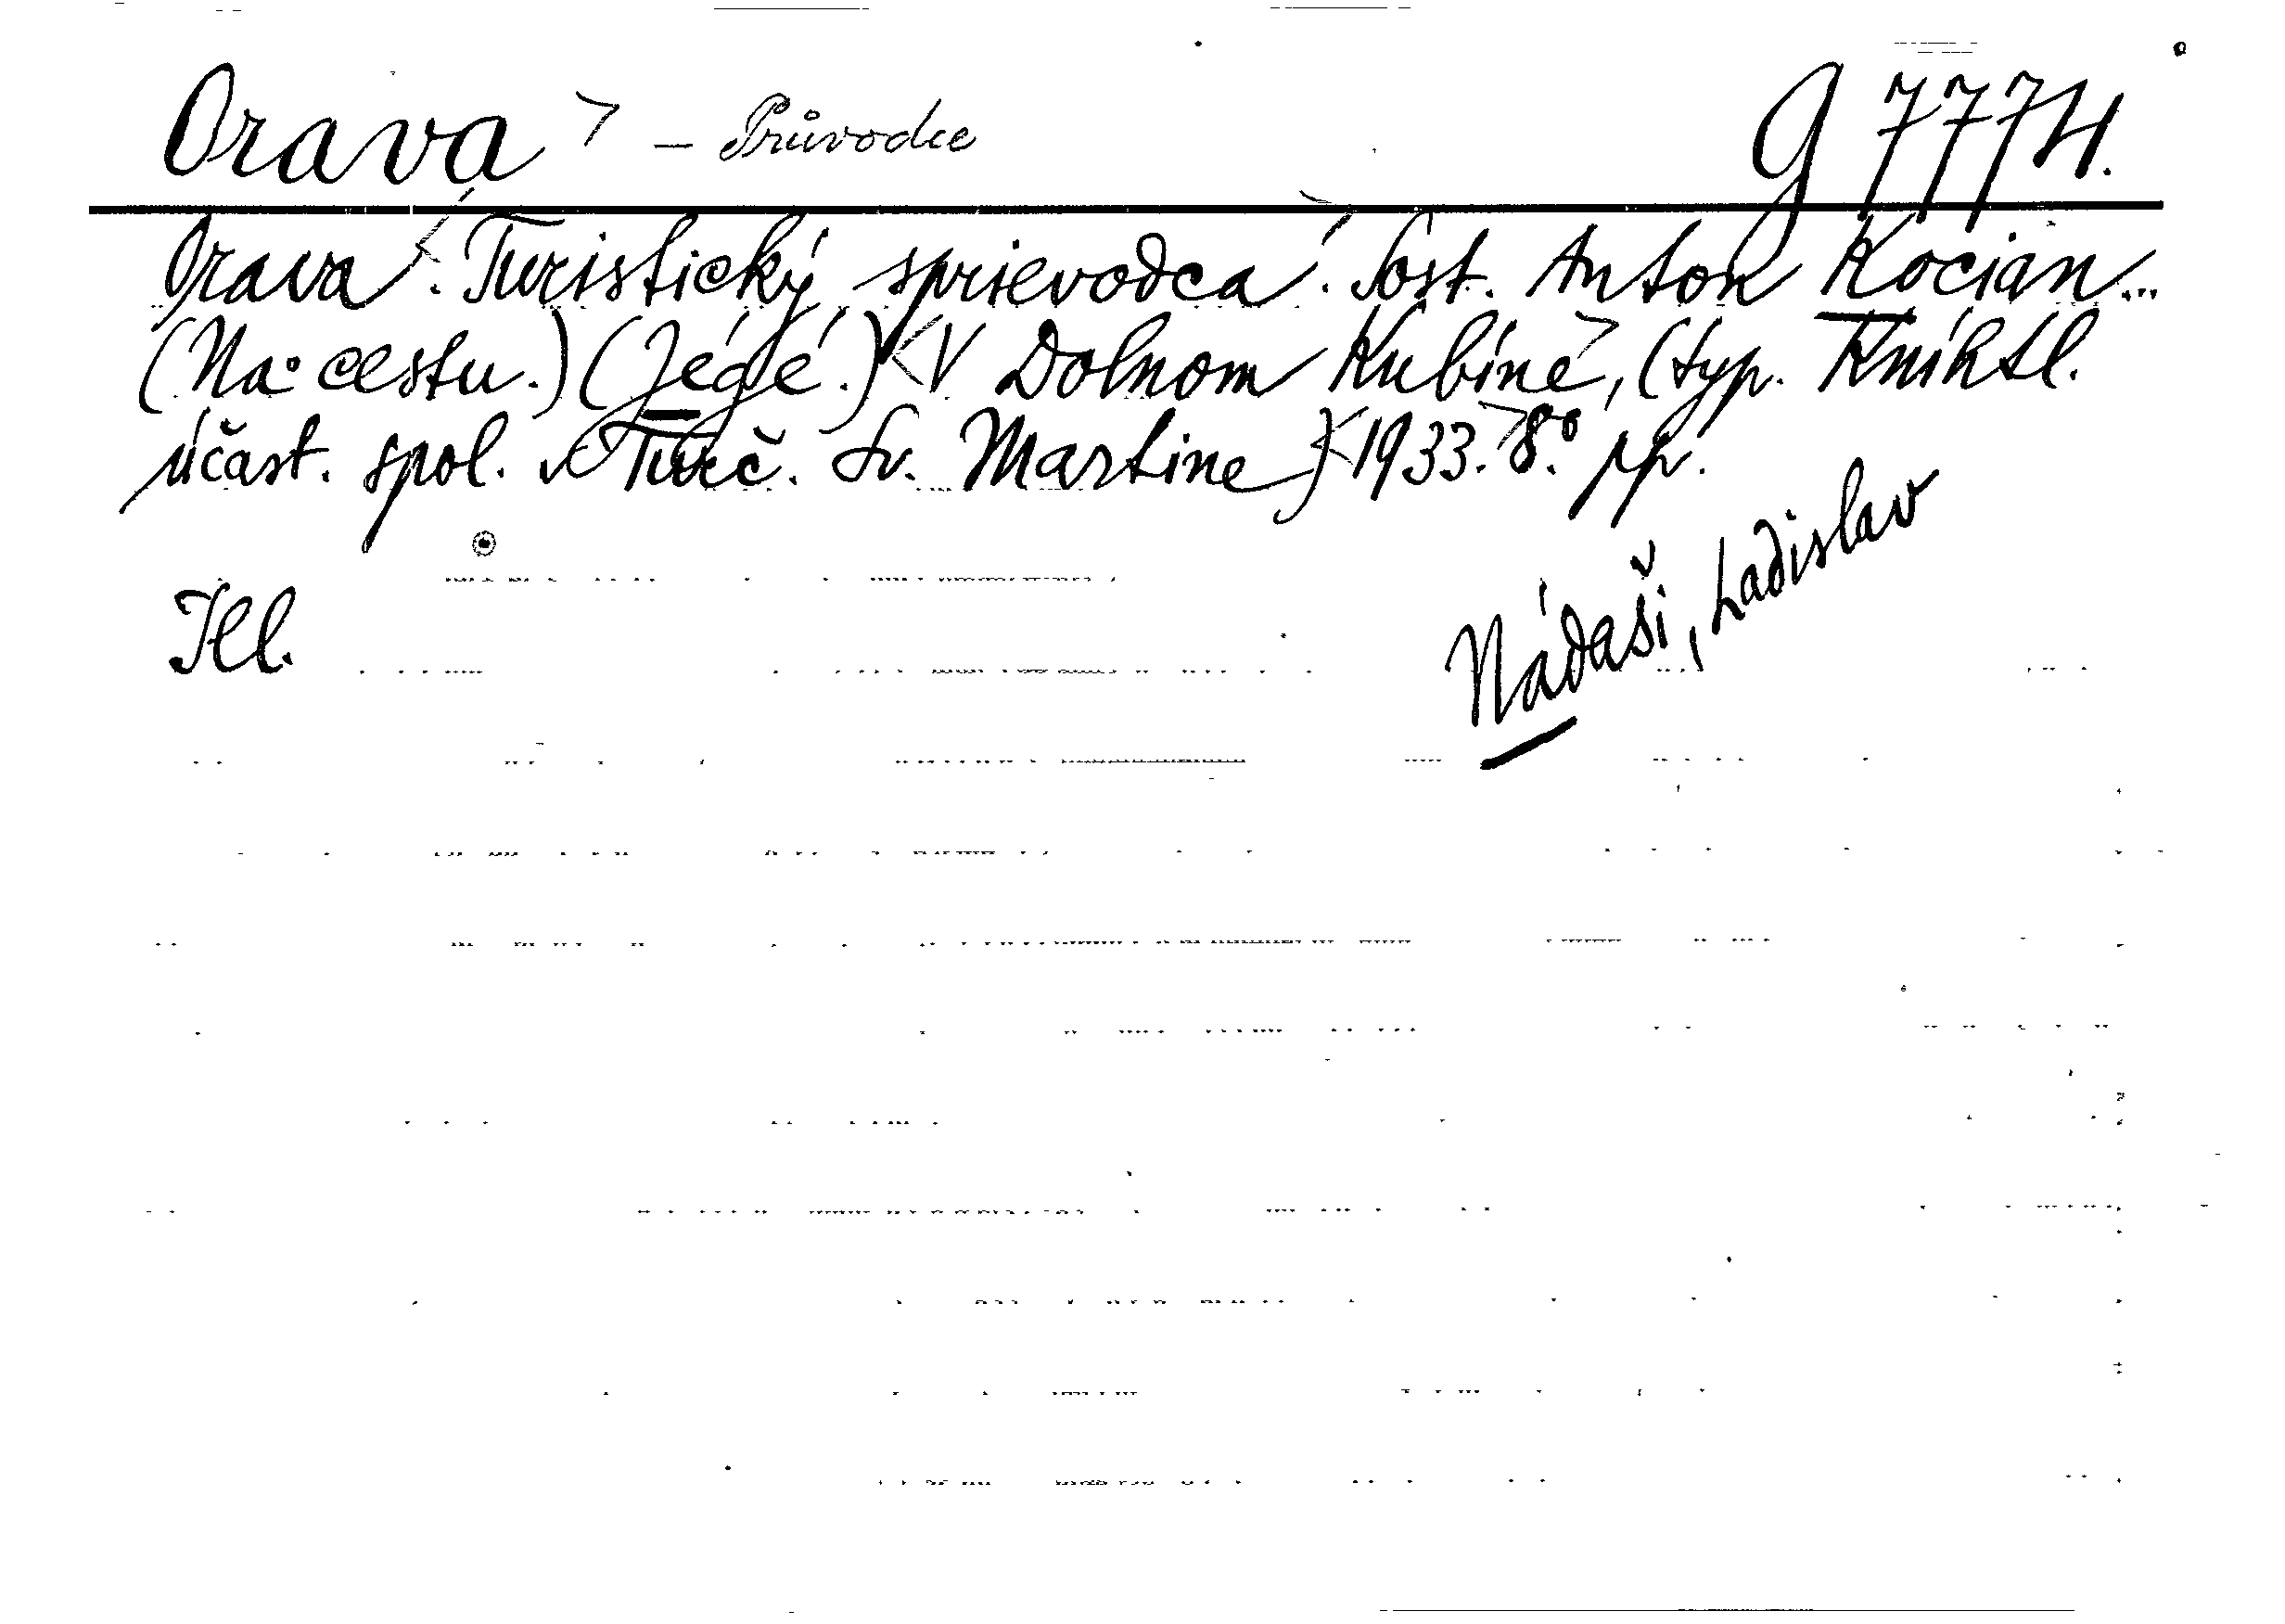 Orava > – Průvodce g 7774.
Orava <. Turistický sprievodca. Sost. Anton Kocian...
(Na cestu.) (Jégé.) < V Dolnom Kubíne >, (typ. Kníhtl.
účast. spol. v Turč. Sv. Martine) < 1933. > 8.° pp.
Nádaši, Ladislav
Ill.